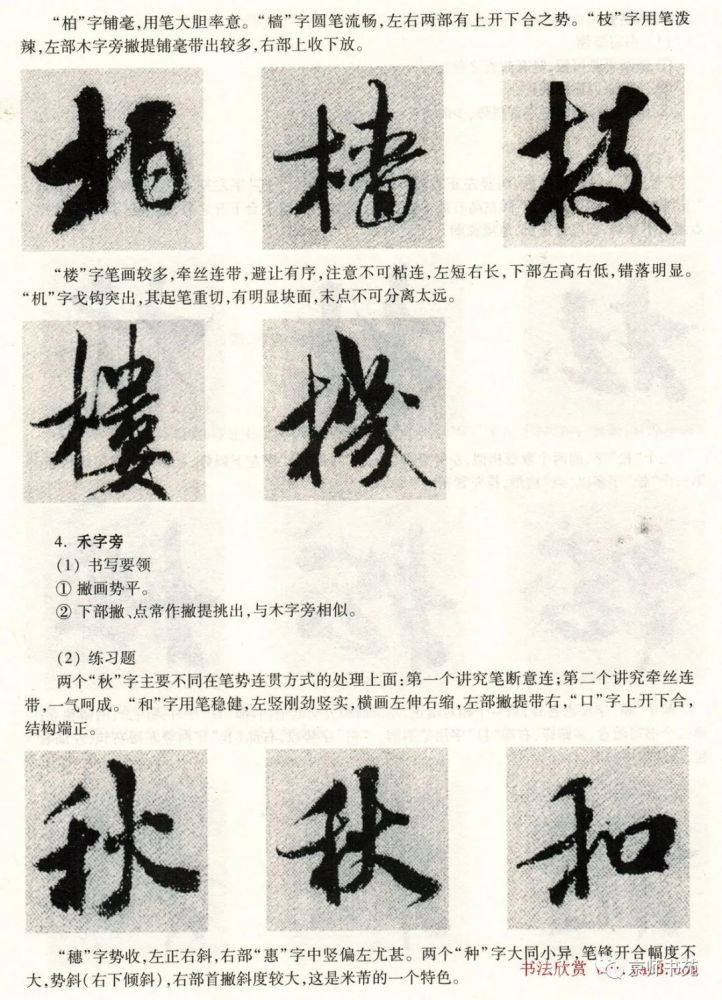 “柏”字铺毫,用笔大胆率意。“樯”字圆笔流畅,左右两部有上开下合之势。“枝”字用笔泼
辣,左部木字旁撇提铺毫带出较多,右部上收下放。
柏 樯 枝
“楼”字笔画较多,牵丝连带,避让有序,注意不可粘连,左短右长,下部左高右低,错落明显。
“机”字戈钩突出,其起笔重切,有明显块面,末点不可分离太远。
樓 機
4. 禾字旁
(1) 书写要领
① 撇画势平。
② 下部撇、点常作撇提挑出,与木字旁相似。
(2) 练习题
两个“秋”字主要不同在笔势连贯方式的处理上面:第一个讲究笔断意连;第二个讲究牵丝连
带,一气呵成。“和”字用笔稳健,左竖刚劲竖实,横画左伸右缩,左部撇提带右,“口”字上开下合,
结构端正。
秋 秋 和
“穗”字势收,左正右斜,右部“惠”字中竖偏左尤甚。两个“种”字大同小异,笔锋开合幅度不
大,势斜(右下倾斜),右部首撇斜度较大,这是米芾的一个特色。
书法欣赏